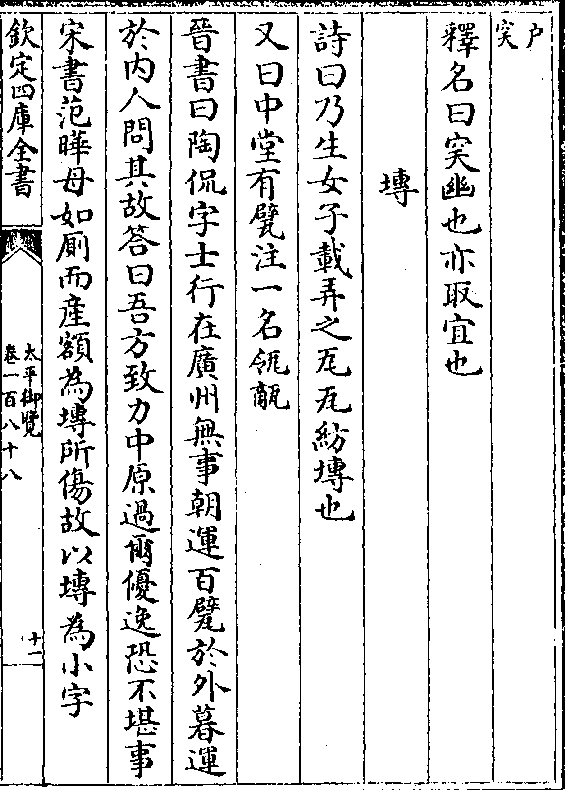 户
穾
釋名曰穾幽也亦取宜也
塼
詩曰乃生女子載弄之瓦瓦紡塼也
又曰中堂有甓注一名瓴甋
晉書曰陶侃字士行在廣州無事朝運百甓於外暮運
於内人問其故答曰吾方致力中原過爾優逸恐不堪事
宋書范曄母如厠而產額為塼所傷故以塼為小字
欽定四庫全書
太平御覽
卷一百八十八
十一